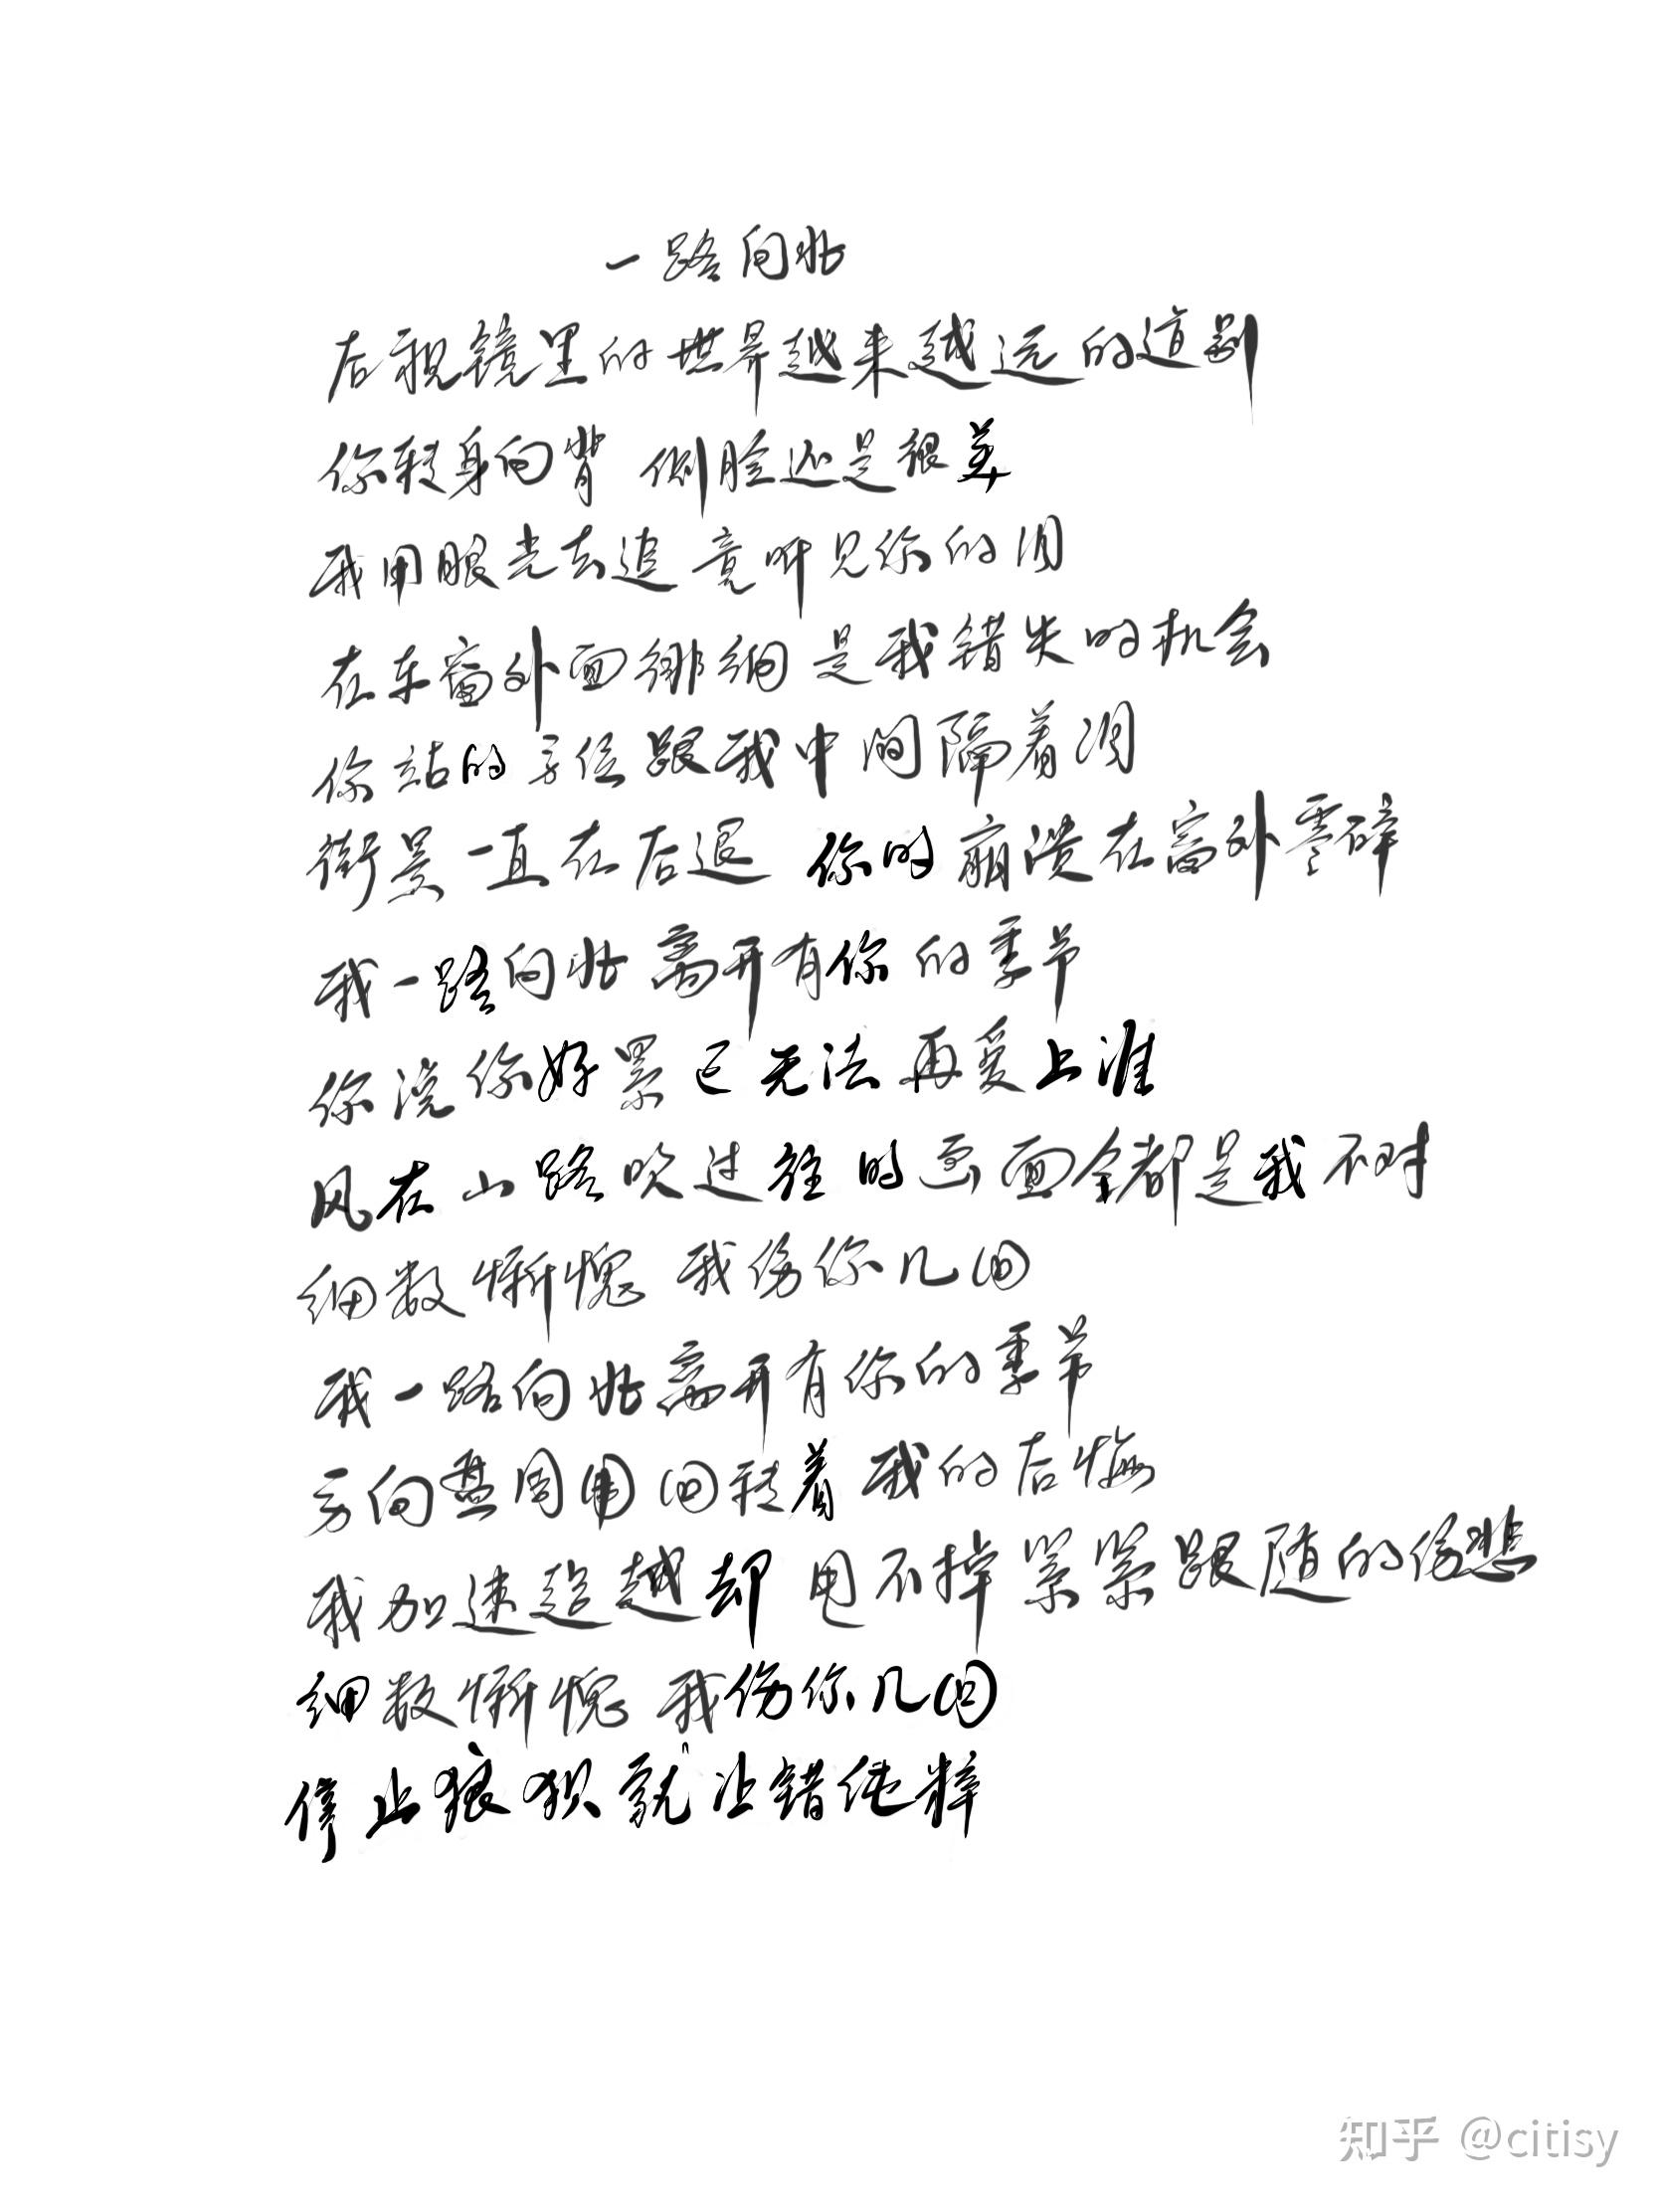 一路向北
后视镜里的世界越来越远的道别
你转身向背 侧脸还是很美
我用眼光去追 竟听见你的泪
在车窗外面徘徊 是我错失的机会
你站的方位跟我中间隔着泪
街景一直在后退 你的崩溃在窗外零碎
我一路向北 离开有你的季节
你说你好累 已无法再爱上谁
风在山路吹 过往的画面全都是我不对
细数惭愧 我伤你几回
我一路向北 离开有你的季节
方向盘周围 回转着我的后悔
我加速超越却甩不掉紧紧跟随的伤悲
细数惭愧 我伤你几回
停止狼狈就让错纯粹
知乎 @citisy